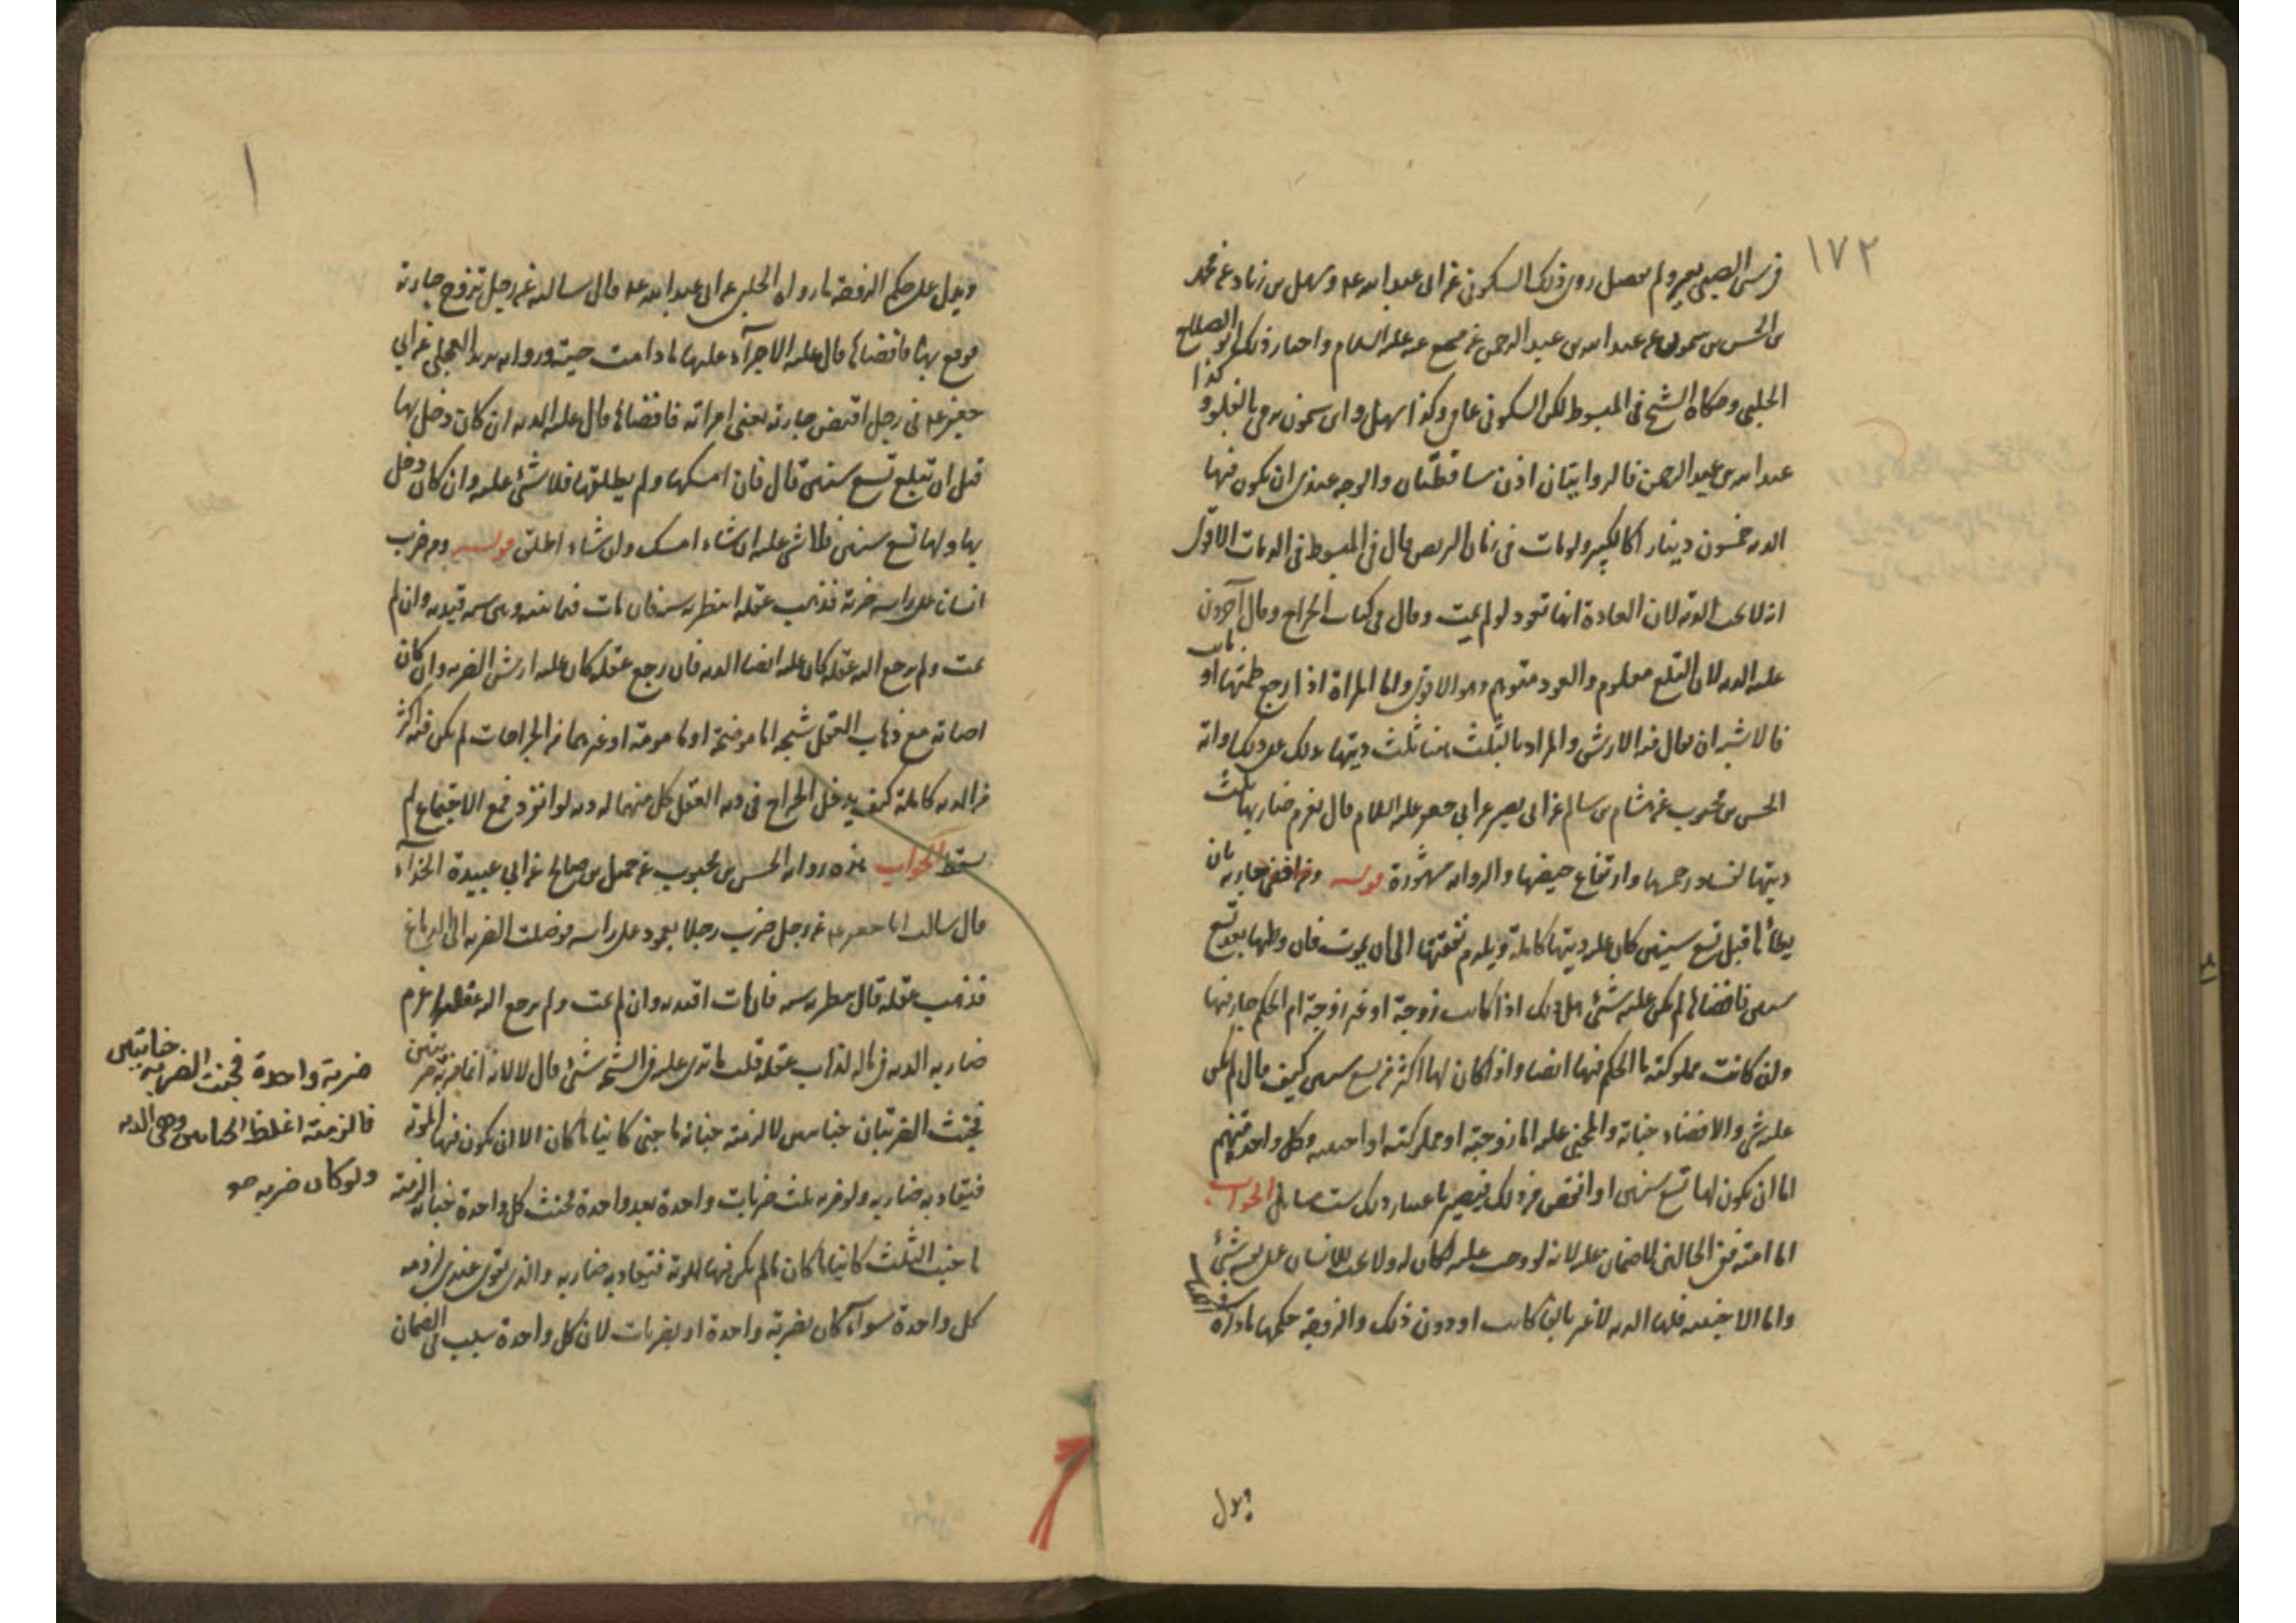 ١٧٢
في سن الصبي بعير ولم يفصل روى ذلك السكوني عن ابي عبد الله عه وسهل بن زياد عن محمد
بن الحسن بن شمون عن عبد الله بن عبد الرحمن عن مسمع عنه عليه السلام واختار ذلك ابو الصلاح
الحلبي وحكاه الشيخ في المبسوط لكن السكوني عامي وكذا سهل وابن شمون يرمى بالغلو وكذا
عبد الله بن عبد الرحمن فالروايتان اذن ساقطتان والوجه عندي ان يكون فيها
الدية خمسون دينارا كالكبير ولو مات في زمان التربص قال في المبسوط في الديات الاقوى
انه لا يجب الدية لان العادة انها تعود لو لم يمت وقال في كتاب الجراح وقال آخرون
عليه الدية لان القلع معلوم والعود متوهم وهو الاقوى واما المراة اذا ارتفع طمثها
فالاشبه ان يقال فيه الارش والمراد بالثلث هنا ثلث ديتها يدلك على ذلك رواية
الحسن بن محبوب عن هشام بن سالم عن ابي بصير عن ابي جعفر عليه السلام قال يغرم ضاربها ثلث
ديتها لفساد رحمها وارتفاع حيضها والرواية مشهورة قوله ومن افضى جارية بان
يطأها قبل تسع سنين كان عليه ديتها كاملة ويلزم نفقتها الى ان يموت فان وطئها بعد تسع
سنين فافضاها لم يكن عليه شئ هل ذلك اذا كانت زوجة او غير زوجة ام الحكم جار فيها
وان كانت مملوكته ما الحكم فيها ايضا واذا كان لها اكثر من تسع سنين كيف قال لم يكن
عليه شئ والافضاء جناية والمجني عليه اما زوجته او مملوكته او اجنبية وكل واحدة منهم
اما ان يكون لها تسع سنين او انقص من ذلك فيصير باعتبار ذلك ست مسايل الجواب
اما امته ففي الحالتين لا ضمان عليه لانه لو وجب عليه لكان له ولا يجب للانسان على نفسه شئ
واما الاجنبية فلها الدية لا غير بالغا كانت او دون ذلك والزوجة حكمها ما ذكره
ويدل
ويدل على حكم الزوجة ما رواه الحلبي عن ابي عبد الله عه قال سالته عن رجل تزوج جارية
فوقع بها فافضاها قال عليه الاجراء عليها ما دامت حية ورواية بريد العجلي عن ابي
جعفر عه في رجل اقتض جارية يعني امراته فافضاها قال عليه الدية ان كان دخل بها
قبل ان تبلغ تسع سنين قال فان امسكها ولم يطلقها فلا شئ عليه وان كان دخل
بها ولها تسع سنين فلا شئ عليه ان شاء امسك وان شاء اطلق قوله ومن ضرب
انسانا على راسه ضربة فذهب عقله انتظر به سنة فان مات فيما بينه وبين سنة قيد به وان لم
يمت ولم يرجع اليه عقله كان عليه ايضا الدية فان رجع عقله كان عليه ارش الضربة وان كان
اصابه مع ذهاب العقل شجة اما موضحة او مامومة او غيرهما من الجراحات لم يكن فيه اكثر
من الدية كاملة كيف يدخل الجراح في دية العقل كل منهما له دية لو انفرد فمع الاجتماع لم
يسقط الجواب هذه رواية الحسن بن محبوب عن جميل بن صالح عن ابي عبيدة الحذاء
قال سالت ابا جعفر عه عن رجل ضرب رجلا بعمود على راسه فوصلت الضربة الى الدماغ
فذهب عقله قال ينتظر به سنة فان مات اقيد به وان لم يمت ولم يرجع اليه عقله غرم
ضاربه الدية في ماله لذهاب عقله قلت ما ترى عليه في الشجة شئ قال لا لانه انما ضربه
ضربة واحدة فجنت الضربة جنايتين
فالزمته اغلظ الجنايتين وهي الدية
ولو كان ضربه ضربتين
فجنت الضربتان جنايتين لالزمته جناية ما جنى كائنا ما كان الا ان يكون فيها الموت
فيقاد به ضاربه ولو ضربه ثلث ضربات واحدة بعد واحدة فجنت كل واحدة جناية الزمته
ما جنت الثلث كائنا ما كان ما لم يكن فيها الموت فيقاد به ضاربه والذي يقوى عندي لزوم دية
كل واحدة سواء كان بضربة واحدة او بضربات لان كل واحدة سبب في الضمان